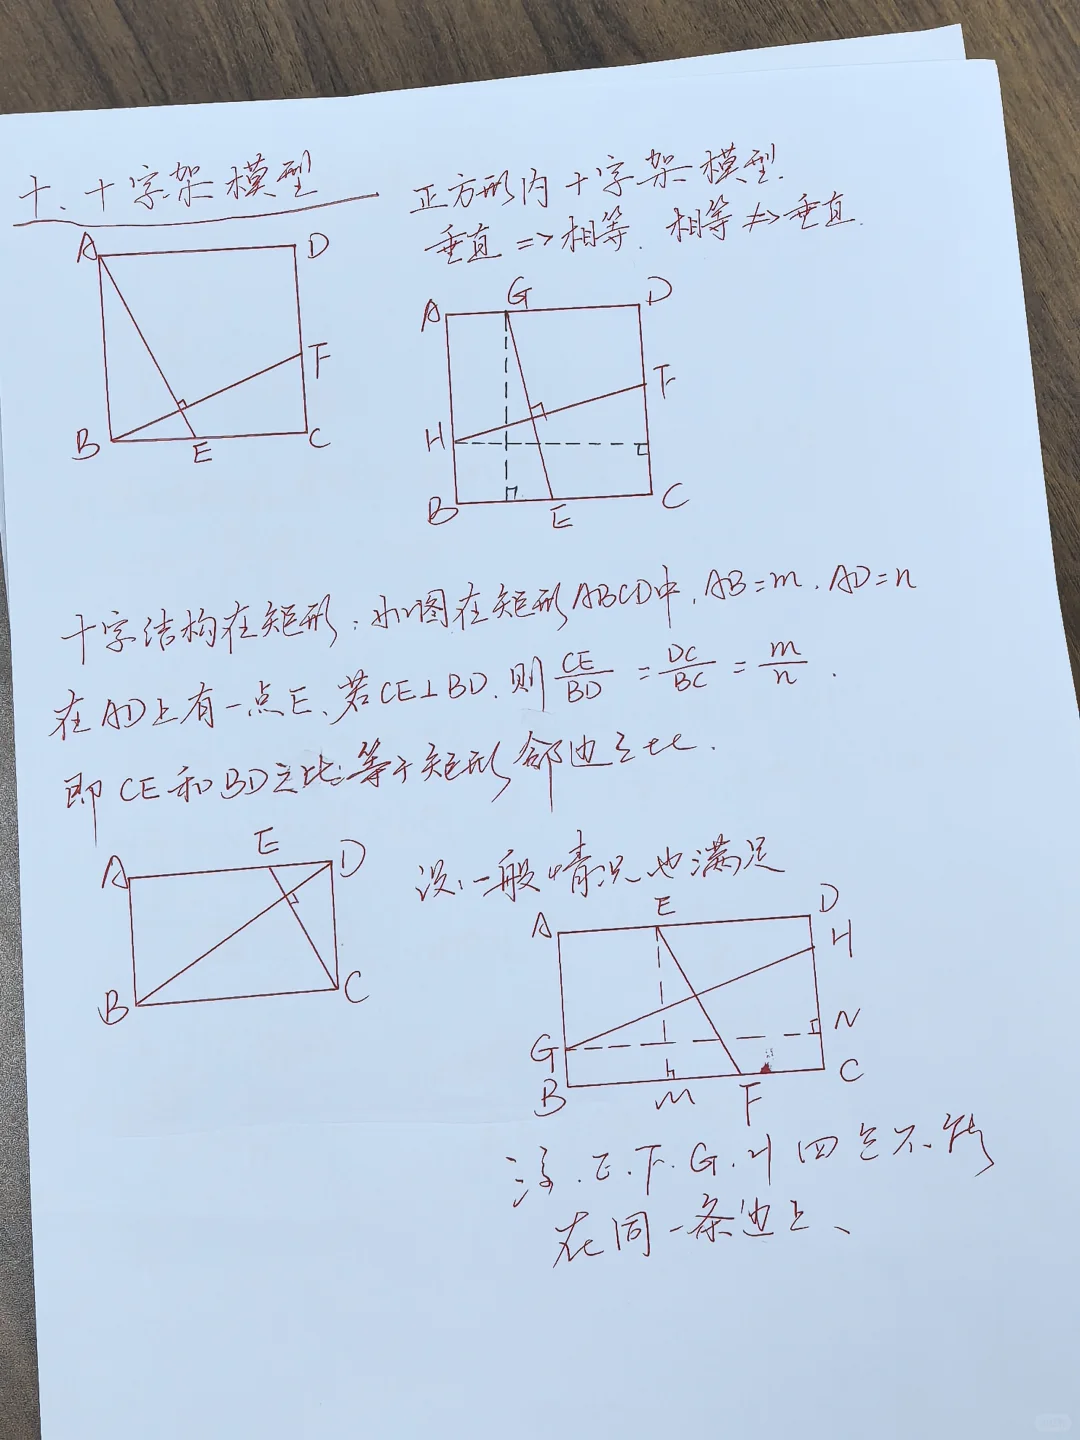 十、十字架模型
正方形内十字架模型.
垂直 => 相等. 相等 ≠> 垂直.
A D
F
B E C
A G D
F
H
B E C
十字结构在矩形:如图在矩形ABCD中,AB=m.AD=n
在AD上有一点E、若CE⊥BD.则 CE/BD = DC/BC = m/n .
即CE和BD之比等于矩形邻边之比.
A E D
B C
一般情况也满足
A E D
H
G N
B M F C
E.F.G.H四点不能
在同一条边上、